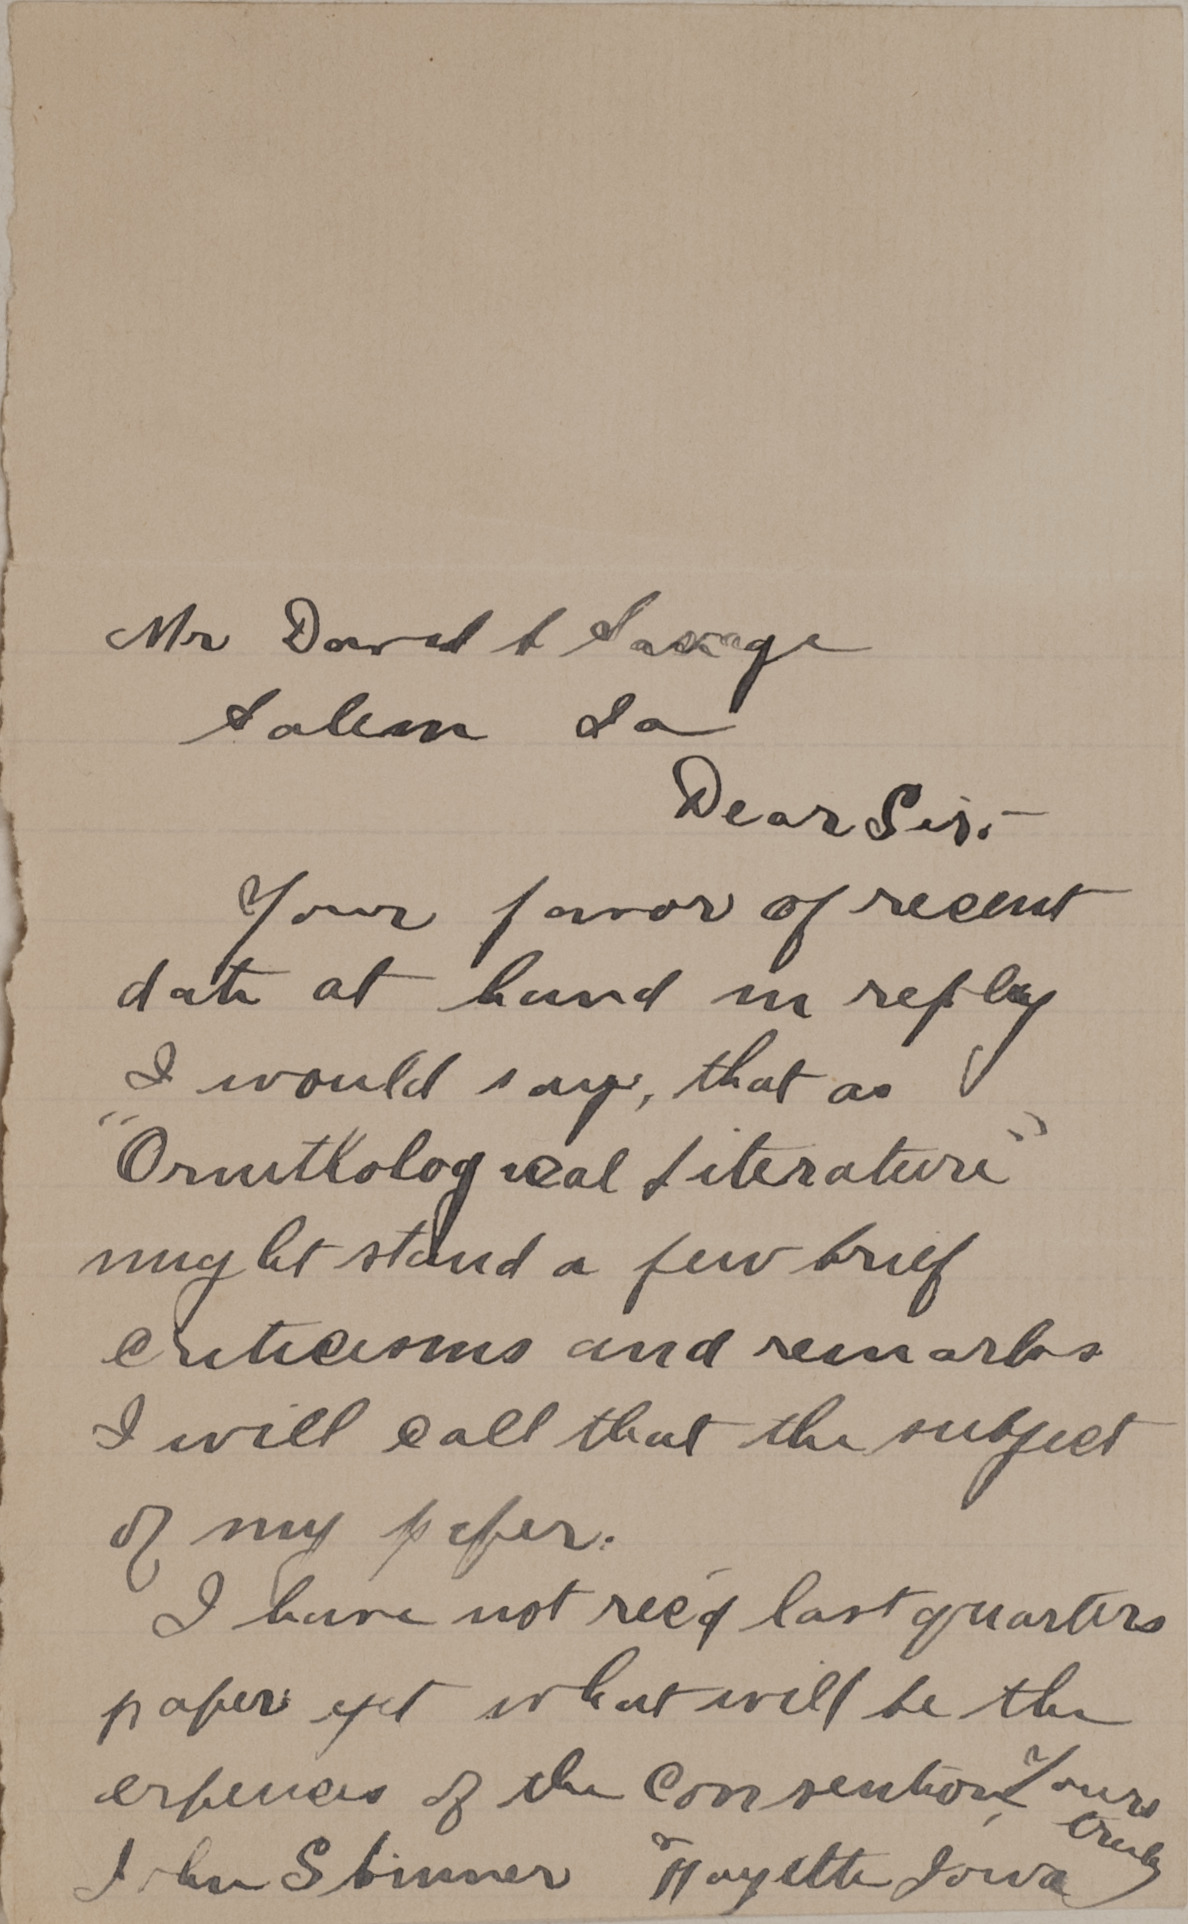 Mr David L Savage
Salem Ia
Dear Sir:—
Your favor of recent
date at hand in reply
I would say, that as
"Ornithological Literature"
might stand a few brief
criticisms and remarks
I will call that the subject
of my paper.
I have not rec'd last quarters
paper yet what will be the
expences of the Convention, Yours
truly
John Skinner Fayette Iowa